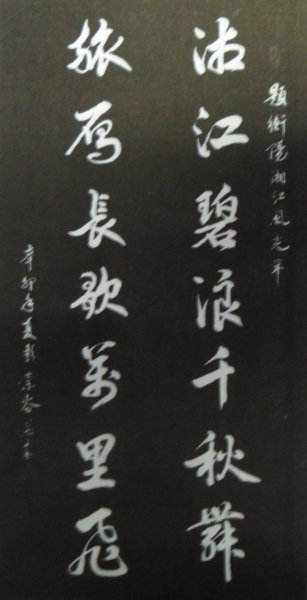 題衡陽湘江風光帶
湘江碧浪千秋舞
旅雁長歌萬里飛
辛卯年夏彭